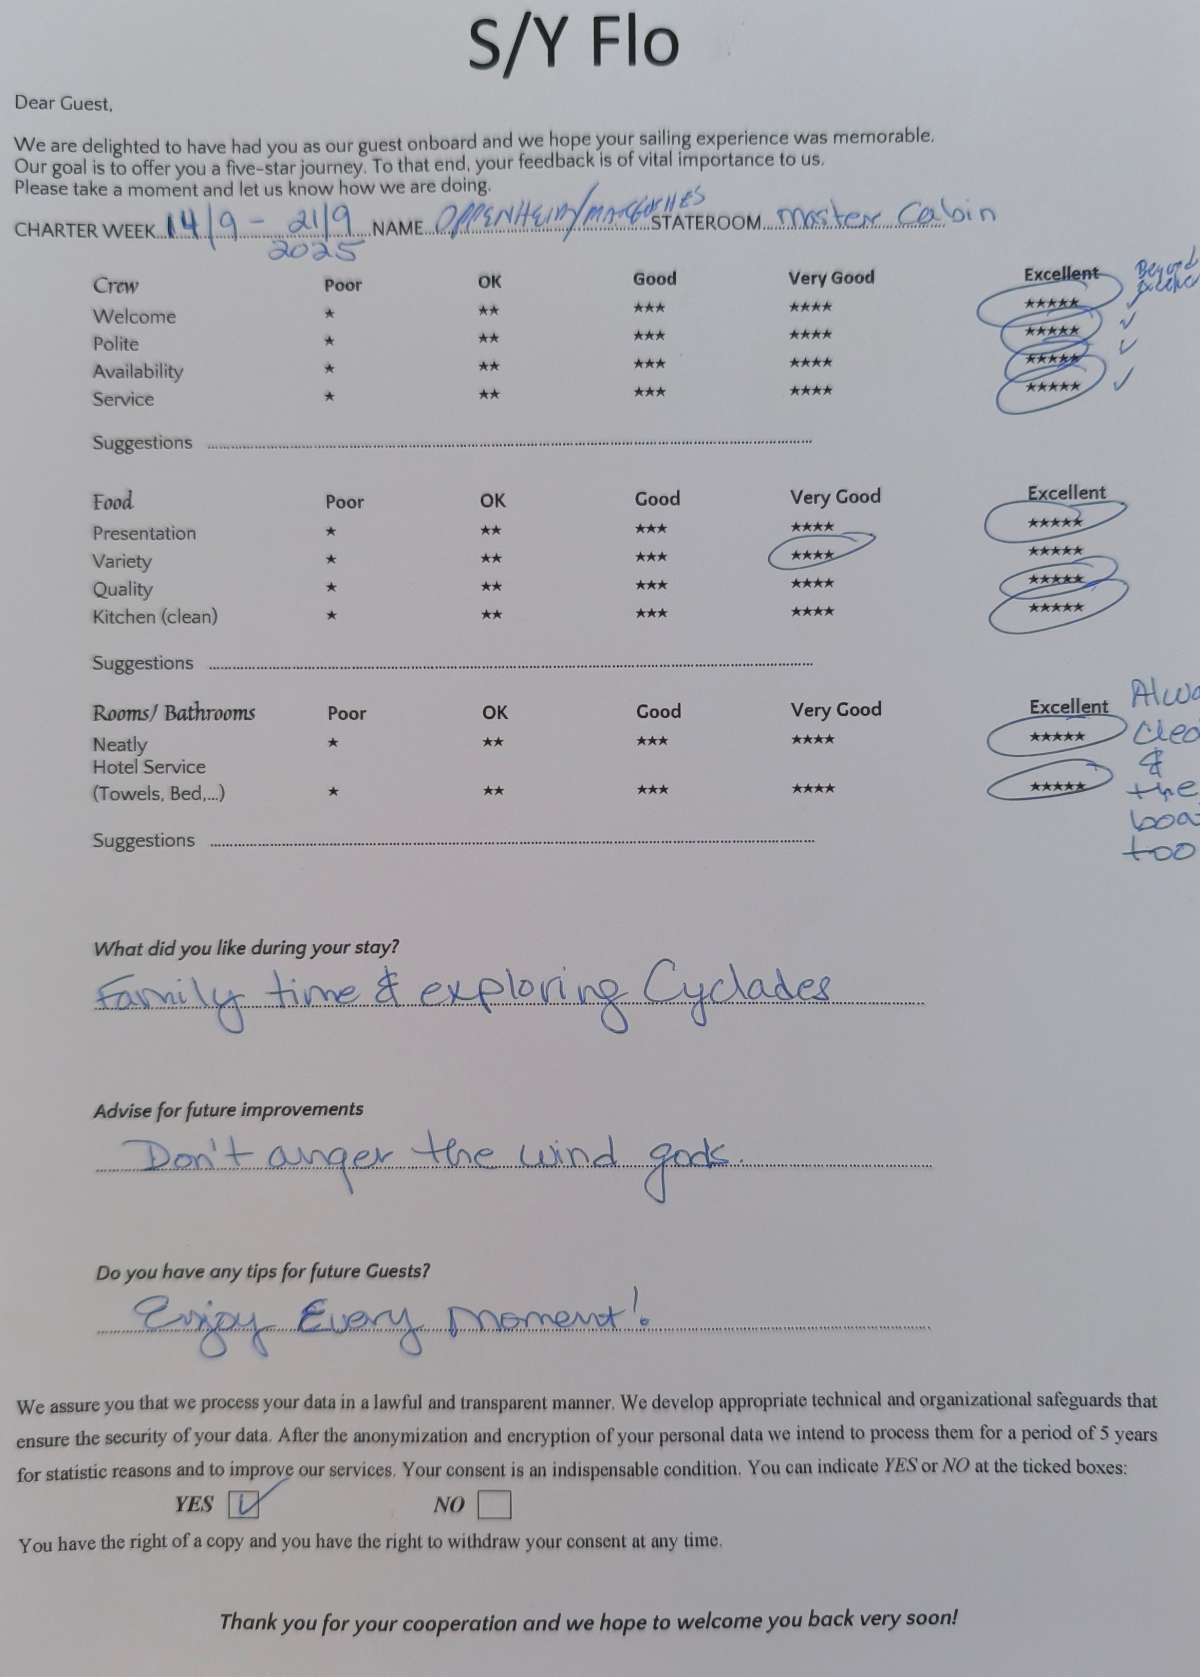 S/Y Flo
Dear Guest,
We are delighted to have had you as our guest onboard and we hope your sailing experience was memorable.
Our goal is to offer you a five-star journey. To that end, your feedback is of vital importance to us.
Please take a moment and let us know how we are doing.
CHARTER WEEK 14/9 - 21/9 NAME OPPENHEIM/ STATEROOM Master Cabin
2025
Crew Poor OK Good Very Good Excellent Beyond
Welcome ★ ★★ ★★★ ★★★★ ★★★★★ ✓
Polite ★ ★★ ★★★ ★★★★ ★★★★★ ✓
Availability ★ ★★ ★★★ ★★★★ ★★★★★ ✓
Service ★ ★★ ★★★ ★★★★ ★★★★★ ✓
Suggestions
Food Poor OK Good Very Good Excellent
Presentation ★ ★★ ★★★ ★★★★ ★★★★★
Variety ★ ★★ ★★★ ★★★★ ★★★★★
Quality ★ ★★ ★★★ ★★★★ ★★★★★
Kitchen (clean) ★ ★★ ★★★ ★★★★ ★★★★★
Suggestions
Rooms/ Bathrooms Poor OK Good Very Good Excellent Alwa
Neatly ★ ★★ ★★★ ★★★★ ★★★★★ Clea
Hotel Service &
(Towels, Bed,...) ★ ★★ ★★★ ★★★★ ★★★★★ the
boa
Suggestions
too
What did you like during your stay?
Family time & exploring Cyclades
Advise for future improvements
Don't anger the wind gods.
Do you have any tips for future Guests?
Enjoy Every Moment!
We assure you that we process your data in a lawful and transparent manner. We develop appropriate technical and organizational safeguards that
ensure the security of your data. After the anonymization and encryption of your personal data we intend to process them for a period of 5 years
for statistic reasons and to improve our services. Your consent is an indispensable condition. You can indicate YES or NO at the ticked boxes:
YES ✓ NO
You have the right of a copy and you have the right to withdraw your consent at any time.
Thank you for your cooperation and we hope to welcome you back very soon!